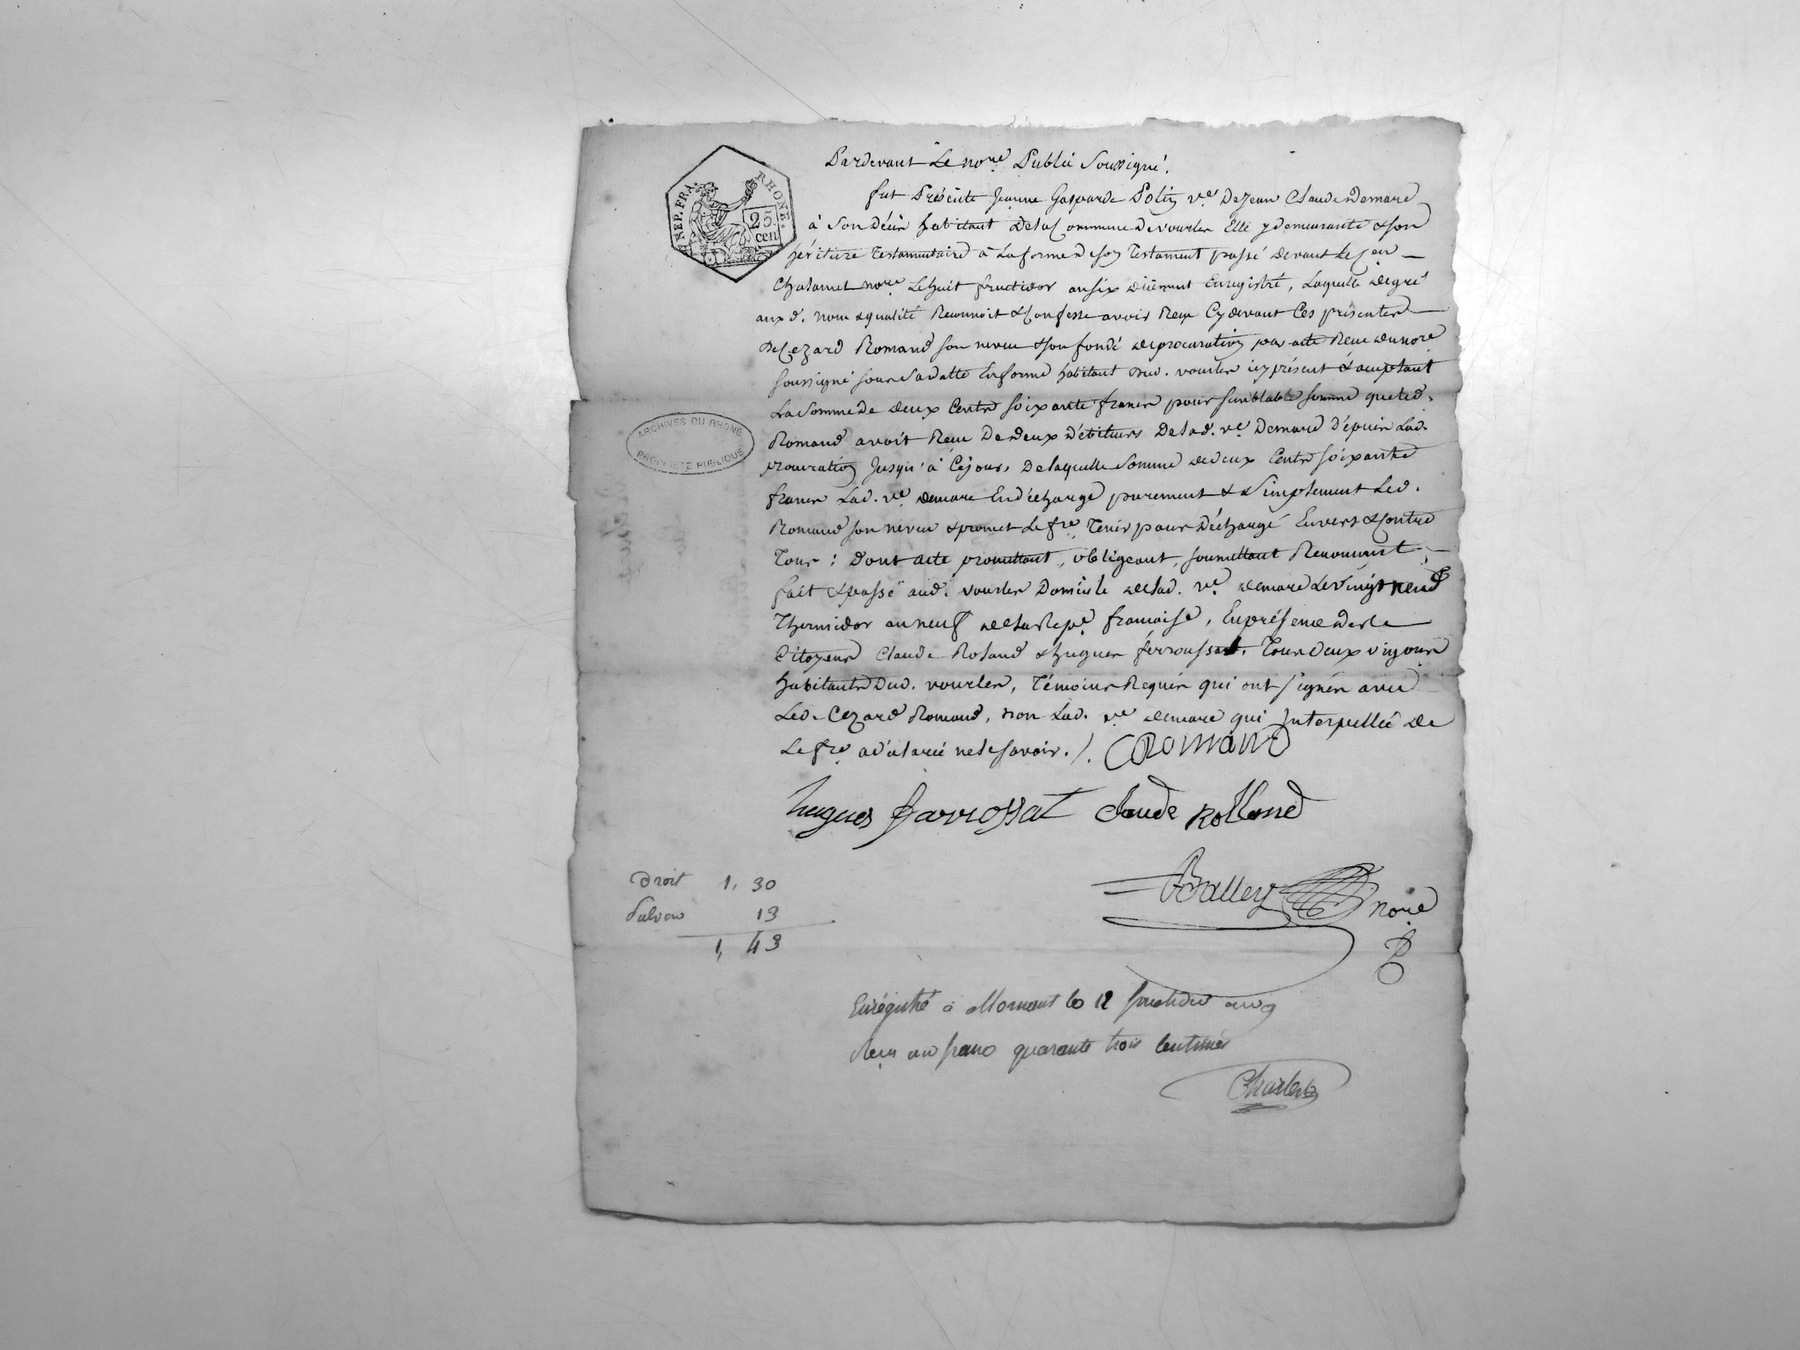 REP. FRA. RHONE.
25.
cen
ARCHIVES DU RHÔNE
PROPRIÉTÉ PUBLIQUE
Pardevant Le nore. Public Soussigné.
fut Présente Jeanne Gasparde Polin ve. De Jean Claude Demare
à Son Décès habitant De la Commune De vourles Elle y demeurante & son
héritière Testamentaire à La forme De son Testament passé devant Le
Chalamet nore. Le huit fructidor an six duement Enregistré, Laquelle de gré
aux d. nom & qualité Reconnoit & Confesse avoir Reçu Cy devant Ces présentes
De Cezard Romand son neveu & son fondé de procuration par acte Reçu du nore
soussigné sous Sa datte En forme habitant dud. vourles icy présent & acceptant
La Somme de deux Cents soixante francs pour semblable somme que led.
Romand avoit Reçu De deux Débiteurs De lad. ve. Demare d'épuis Lad.
procuration Jusqu'à Cejour, De laquelle Somme de deux Cents soixante
francs Lad. ve. demare En décharge purement & Simplement Led.
Romand son neveu & promet Le fre. Tenir pour Déchargé Envers & Contre
Tous : Dont acte promettant, obligeant, soumettant Renonçant,
fait & passé aud. vourles Domicile de lad. ve. demare Le Vingt neuf
Thermidor an neuf de La Repe. francaise, En présence des
Citoyens Claude Roland & hugues ferroussat, Tous Deux vignerons
habitants Dud. vourles, Témoins Requis qui ont signés avec
Led. Cezard Romand, non Lad. ve demare qui Interpellée de
Le fre. a déclaré ne le savoir. /. CRomand
hugues farrossat Claude Rolland
Balley nore
Droit 1, 30
Subvon 13
1, 43
Enrégistré à Mornant le 12 fructidor an 9
Reçu un franc quarante trois Centimes